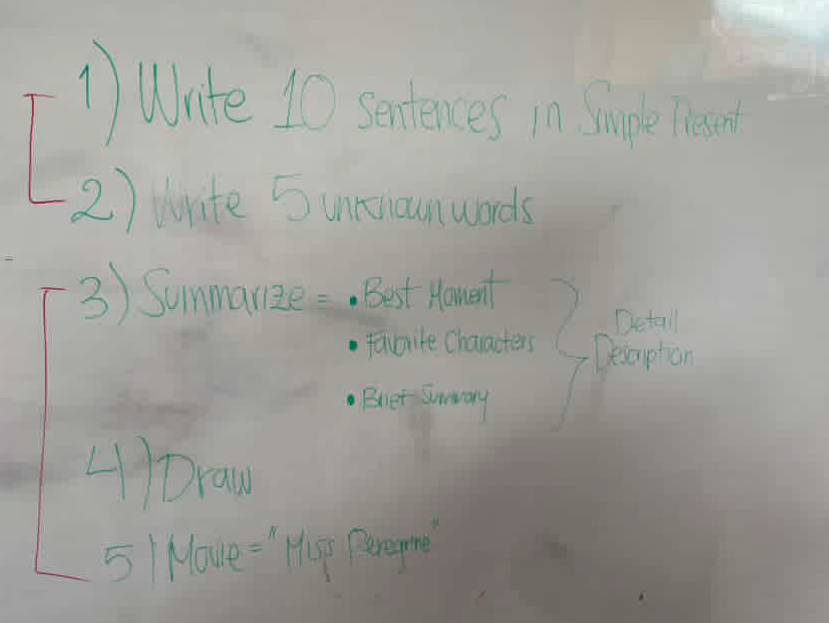 1) Write 10 sentences in Simple Present
2) Write 5 unknown words
3) Summarize = • Best Moment
• Favorite Characters
• Brief Summary
Detail
Description
4) Draw
5) Movie = "Miss Peregrine"